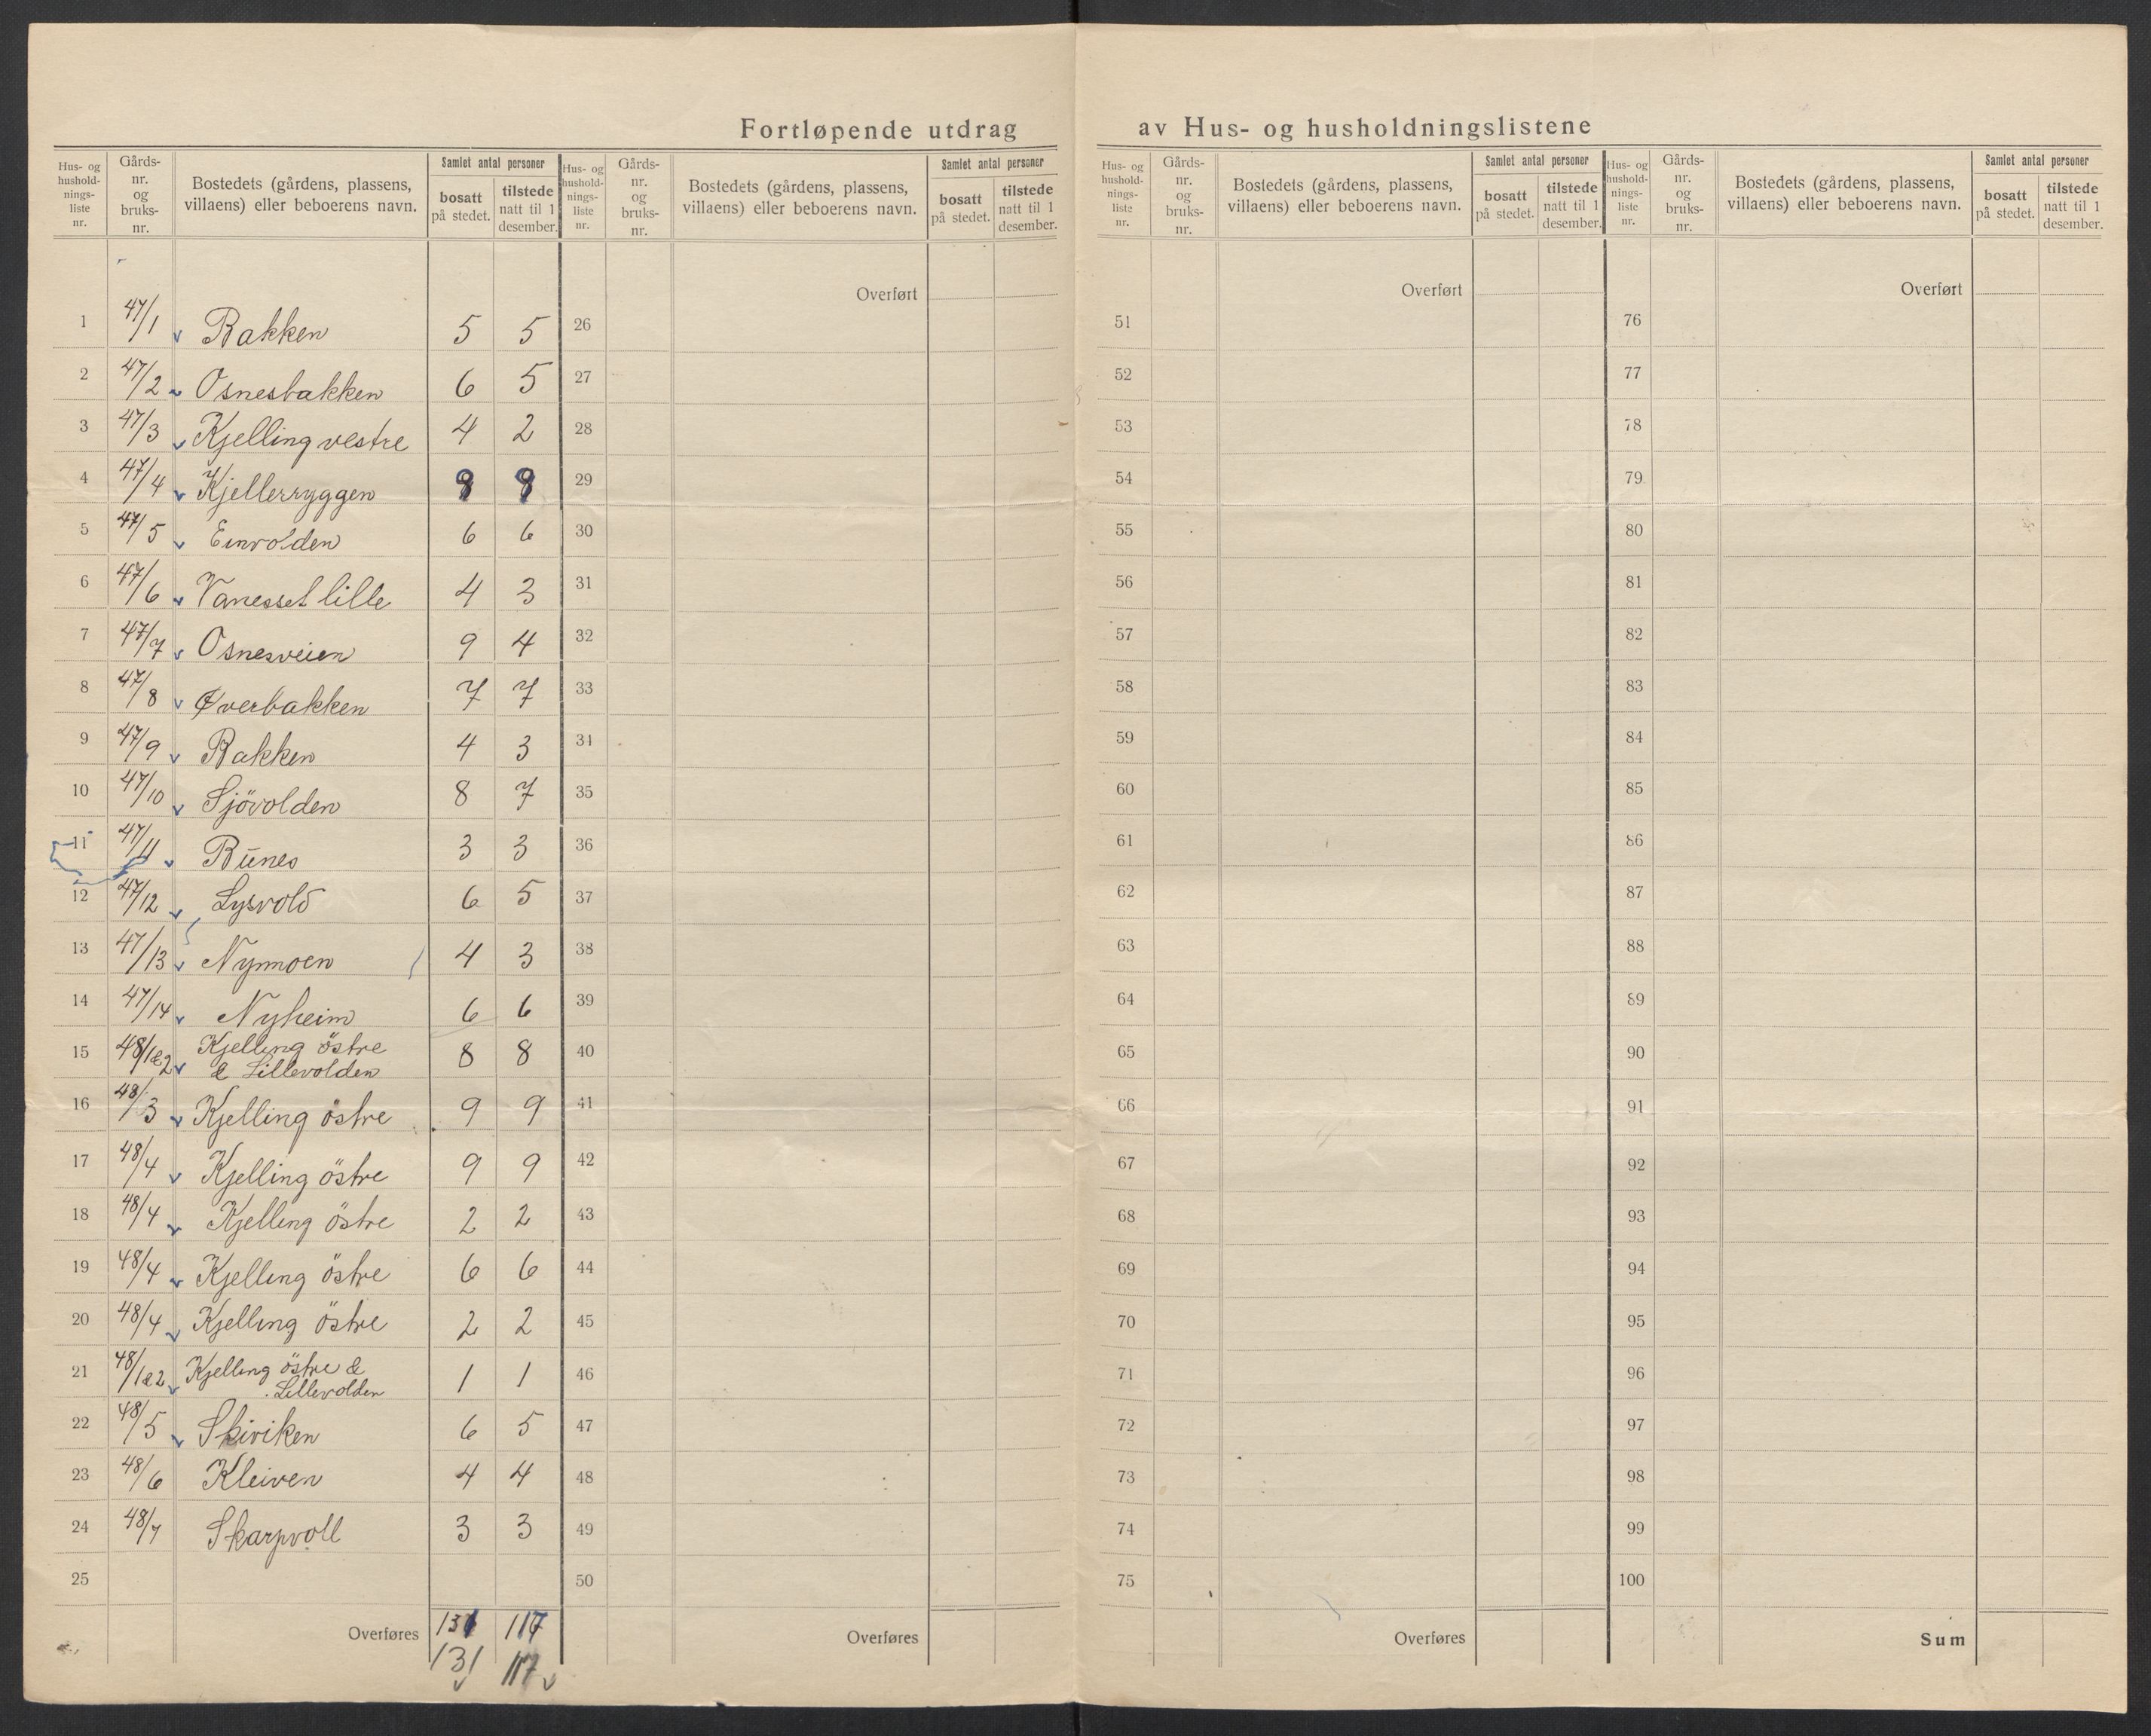 Fortløpende utdrag av Hus- og husholdningslistene
Hus- og hushold- nings- liste nr. Gårds- nr. og bruks- nr. Bostedets (gårdens, plassens, villaens) eller beboerens navn. Samlet antal personer bosatt på stedet. tilstede natt til 1 desember.
Hus- og hushold- nings- liste nr. Gårds- nr. og bruks- nr. Bostedets (gårdens, plassens, villaens) eller beboerens navn. Samlet antal personer bosatt på stedet. tilstede natt til 1 desember.
Hus- og hushold- nings- liste nr. Gårds- nr. og bruks- nr. Bostedets (gårdens, plassens, villaens) eller beboerens navn. Samlet antal personer bosatt på stedet. tilstede natt til 1 desember.
Hus- og hushold- nings- liste nr. Gårds- nr. og bruks- nr. Bostedets (gårdens, plassens, villaens) eller beboerens navn. Samlet antal personer bosatt på stedet. tilstede natt til 1 desember.
Overført Overført Overført
1 47/1 Bakken 5 5 26 51 76
2 47/2 Osnesbakken 6 5 27 52 77
3 47/3 Kjelling vestre 4 2 28 53 78
4 47/4 Kjellerryggen 9 9 29 54 79
5 47/5 Einvolden 6 6 30 55 80
6 47/6 Vanesset lille 4 3 31 56 81
7 47/7 Osnesveien 9 4 32 57 82
8 47/8 Øverbakken 7 7 33 58 83
9 47/9 Bakken 4 3 34 59 84
10 47/10 Sjövolden 8 7 35 60 85
11 47/11 Bunes 3 3 36 61 86
12 47/12 Lysvold 6 5 37 62 87
13 47/13 Nymoen 4 3 38 63 88
14 47/14 Nyheim 6 6 39 64 89
15 48/1&2 Kjelling östre & Lillevolden 8 8 40 65 90
16 48/3 Kjelling östre 9 9 41 66 91
17 48/4 Kjelling östre 9 9 42 67 92
18 48/4 Kjelling östre 2 2 43 68 93
19 48/4 Kjelling östre 6 6 44 69 94
20 48/4 Kjelling östre 2 2 45 70 95
21 48/1&2 Kjelling östre & Lillevolden 1 1 46 71 96
22 48/5 Skiviken 6 5 47 72 97
23 48/6 Kleiven 4 4 48 73 98
24 48/7 Skarpvoll 3 3 49 74 99
25 50 75 100
Overføres 131 117 Overføres Overføres Sum
131 117